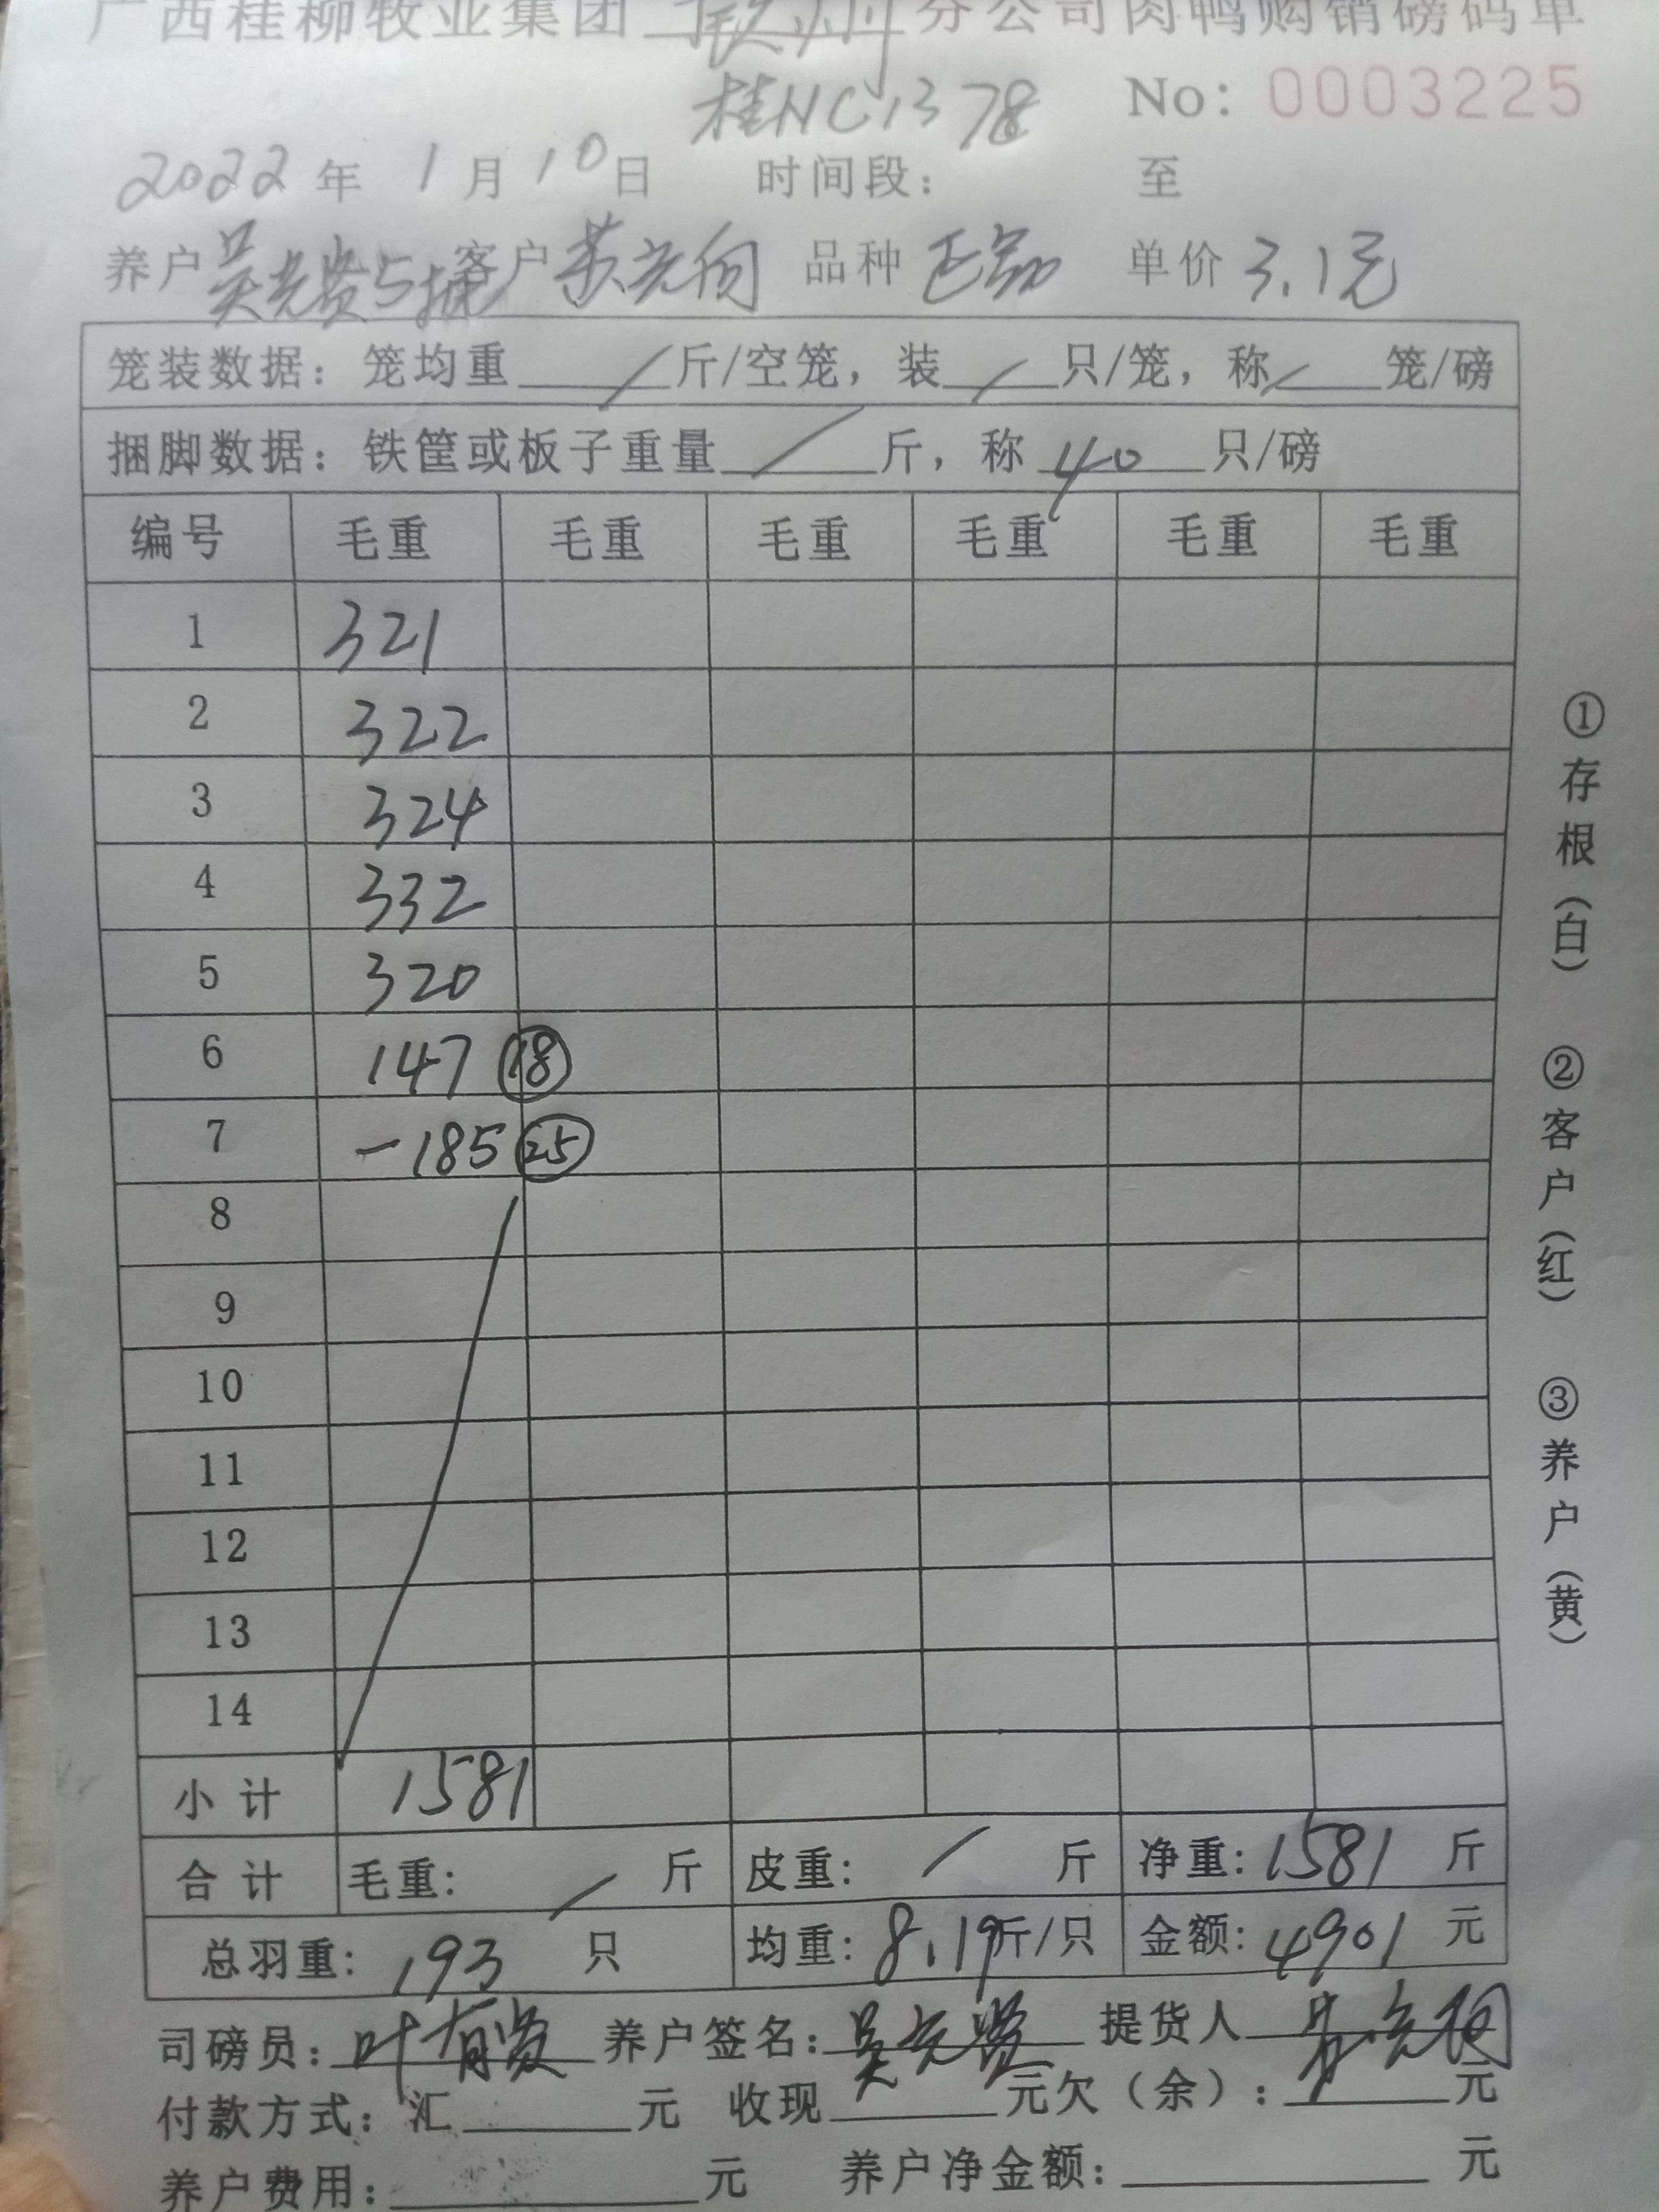 广西桂柳牧业集团 钦州 分公司肉鸭购销磅码单
桂NC1378 No: 0003225
2022 年 1 月 10 日 时间段: 至
养户 客户 品种 正品 单价 3.1元
笼装数据: 笼均重 / 斤/空笼, 装 / 只/笼, 称 / 笼/磅
捆脚数据: 铁筐或板子重量 / 斤, 称 40 只/磅
编号 毛重 毛重 毛重 毛重 毛重 毛重
1 321
2 322
3 324
4 332
5 320
6 147 ⑱
7 -185 ㉕
8
9
10
11
12
13
14
小计 1581
合计 毛重: / 斤 皮重: / 斤 净重: 1581 斤
总羽重: 193 只 均重: 8.19斤/只 金额: 4901 元
司磅员: 叶有贤 养户签名: 提货人
付款方式: 汇 元 收现 元欠(余): 元
养户费用: 元 养户净金额: 元
①存根(白) ②客户(红) ③养户(黄)